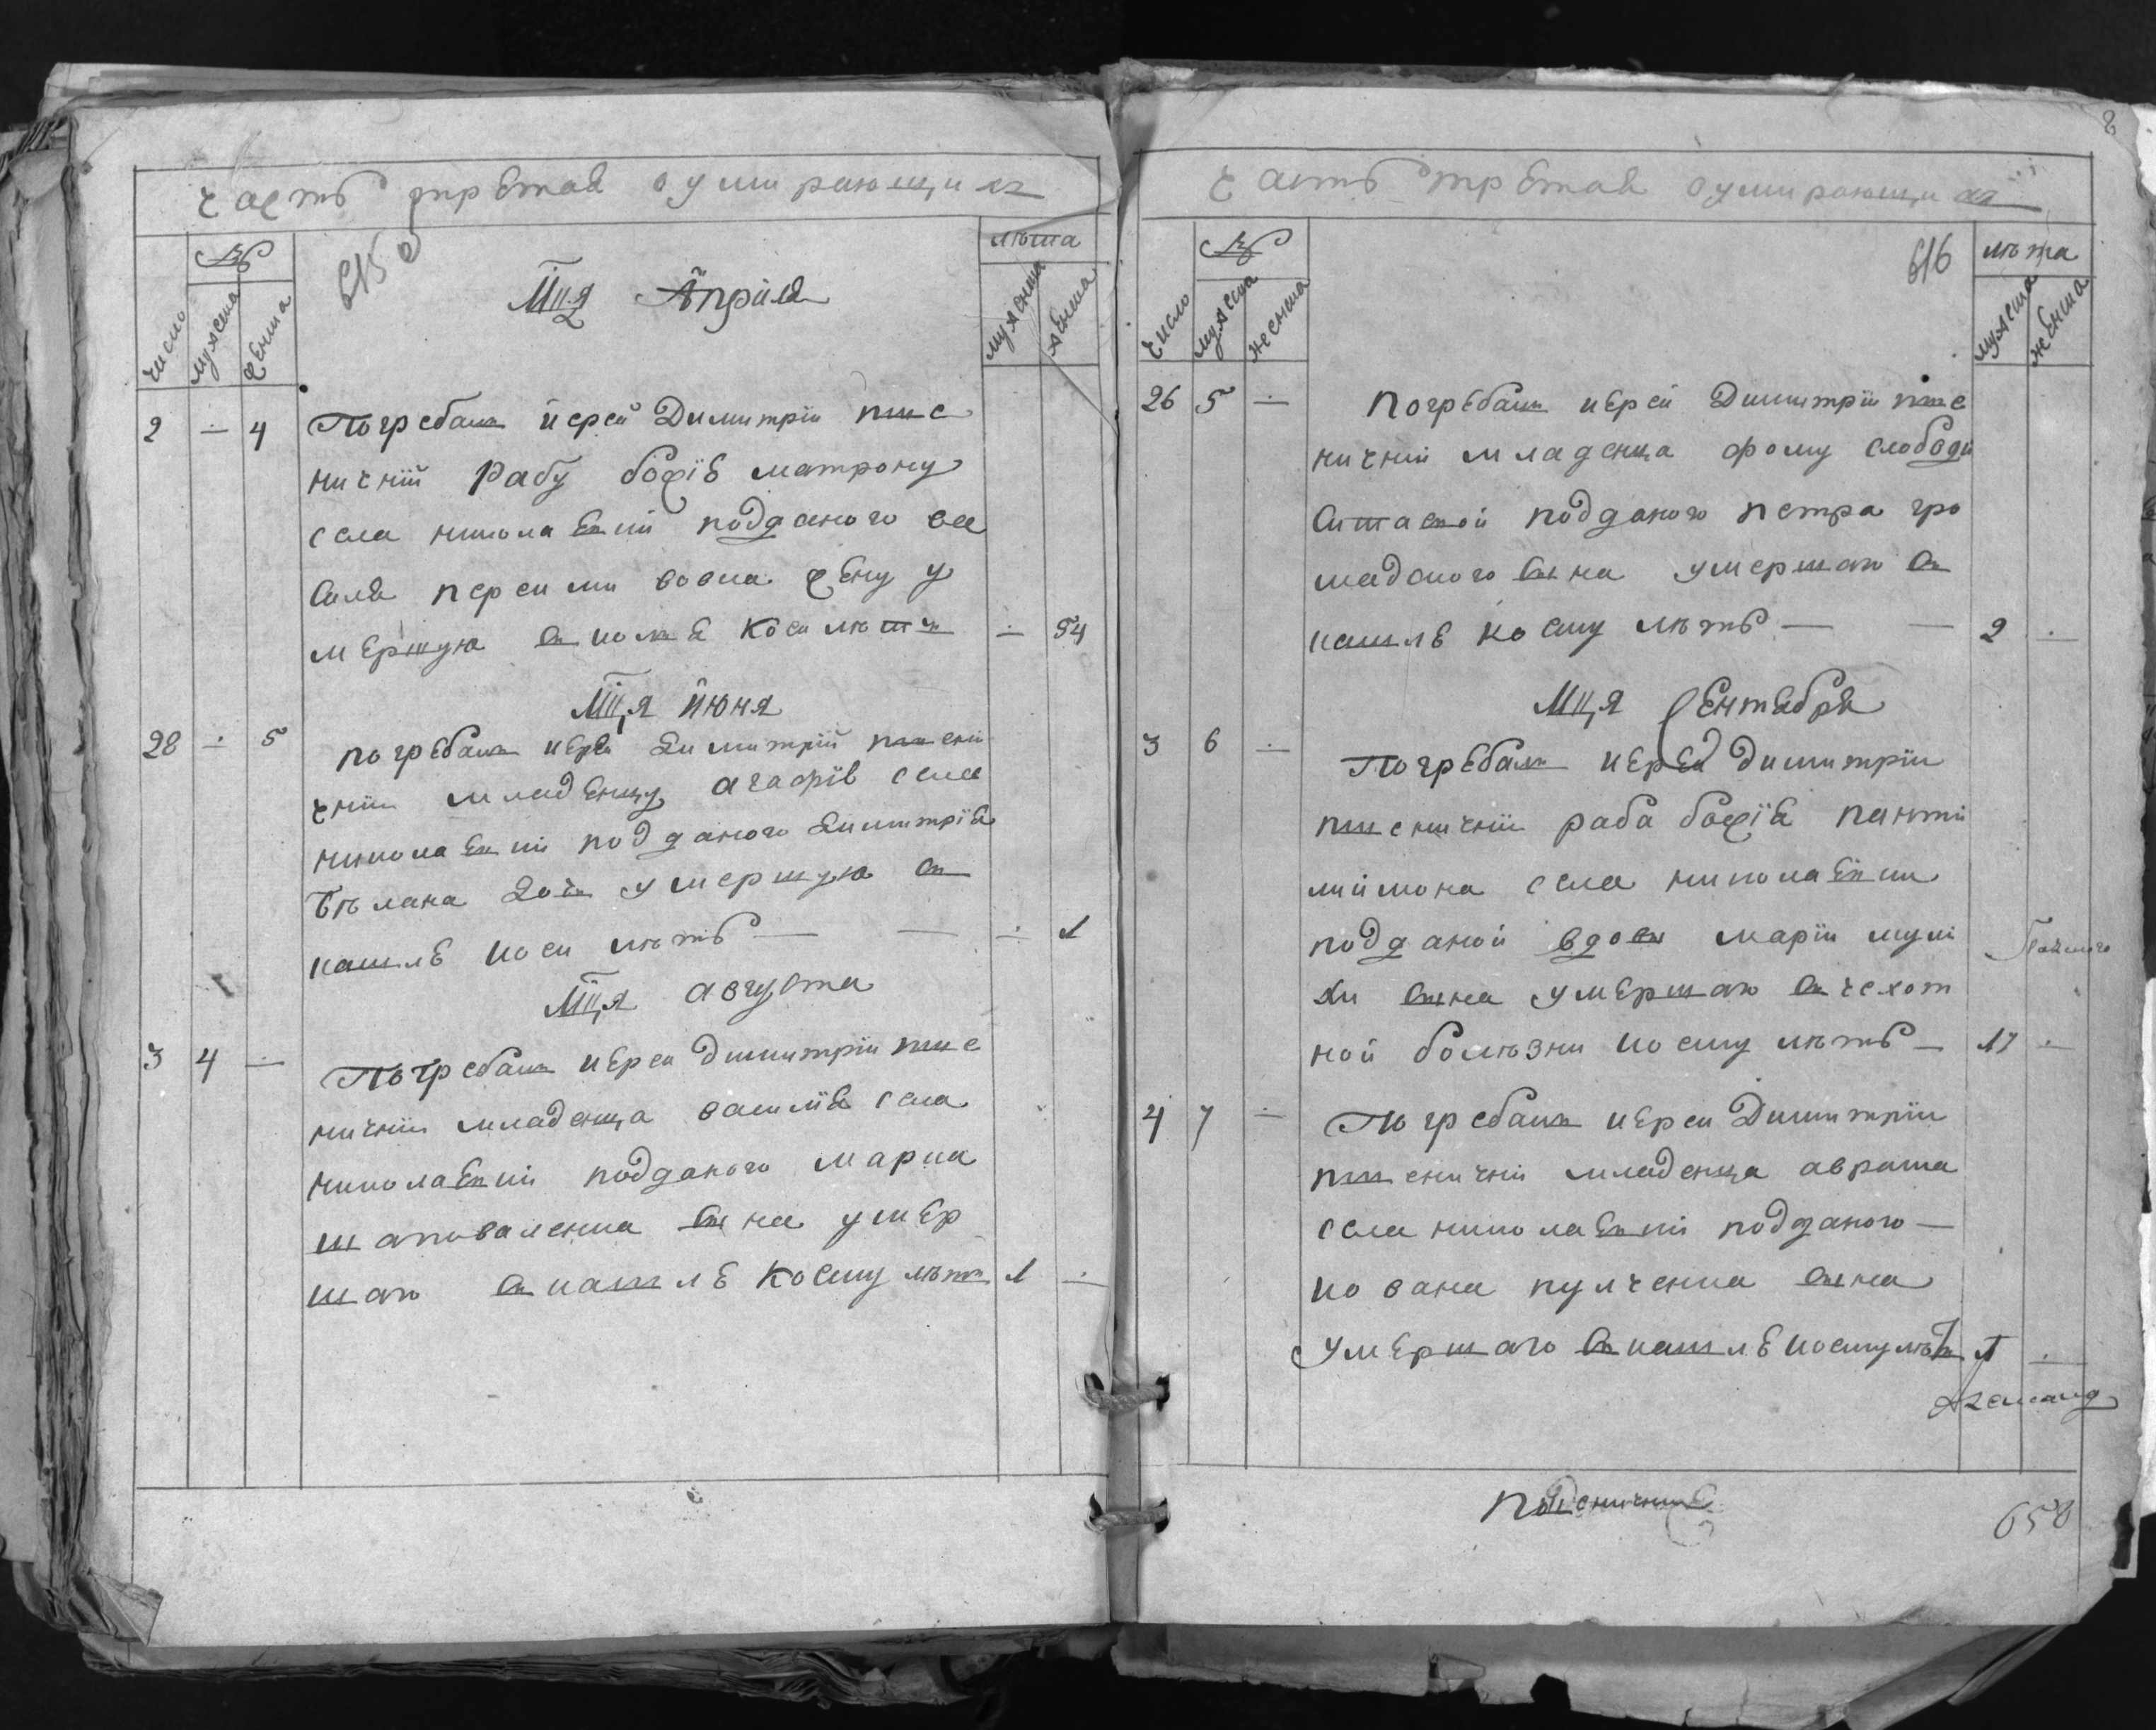 Часть третая оумирающих
615
число
мужеска
женска
лѣта
мужеска
женска
Мца Априля
2 — 4 Погребалъ иерей Димитрій пше
ничній рабу божію матрону
села николаевки подданого ва
силя жену у
мершую коеи лѣтъ — 54
Мця Июня
28 — 5 погребалъ иерей Димитрій пшени
чній младенцу агафію села
николаевки подданого Димитрія
дочь умершую въ
кашлѣ коеи лѣтъ — — — 1
Мця августа
3 4 — Погребалъ иереи Димитріи пше
ничніи младенца василія села
николаевки подданого марка
шаповаленка сына умер
шаго въ кашлѣ коему лѣтъ 1 —
Часть третая оумирающих
616
число
мужеска
женска
лѣта
мужеска
женска
26 5 — погребалъ иереи Димитріи пше
ничніи младенца фому слободи
подданого петра гро
мадского сына умершаго въ
кашлѣ коему лѣтъ — — 2 —
Мця Сентября
3 6 — Погребалъ иерей Димитріи
пшеничніи раба божія панти
лиймона села николаевки
подданой вдовы маріи
сына умершаго въ чехот
ной болѣзни коему лѣтъ — 17 —
4 7 — Погребалъ иереи Димитріи
пшеничніи младенца аврама
села николаевки подданого —
иована кулченка сына
умершаго въ кашлѣ коему лѣтъ 1 —
658